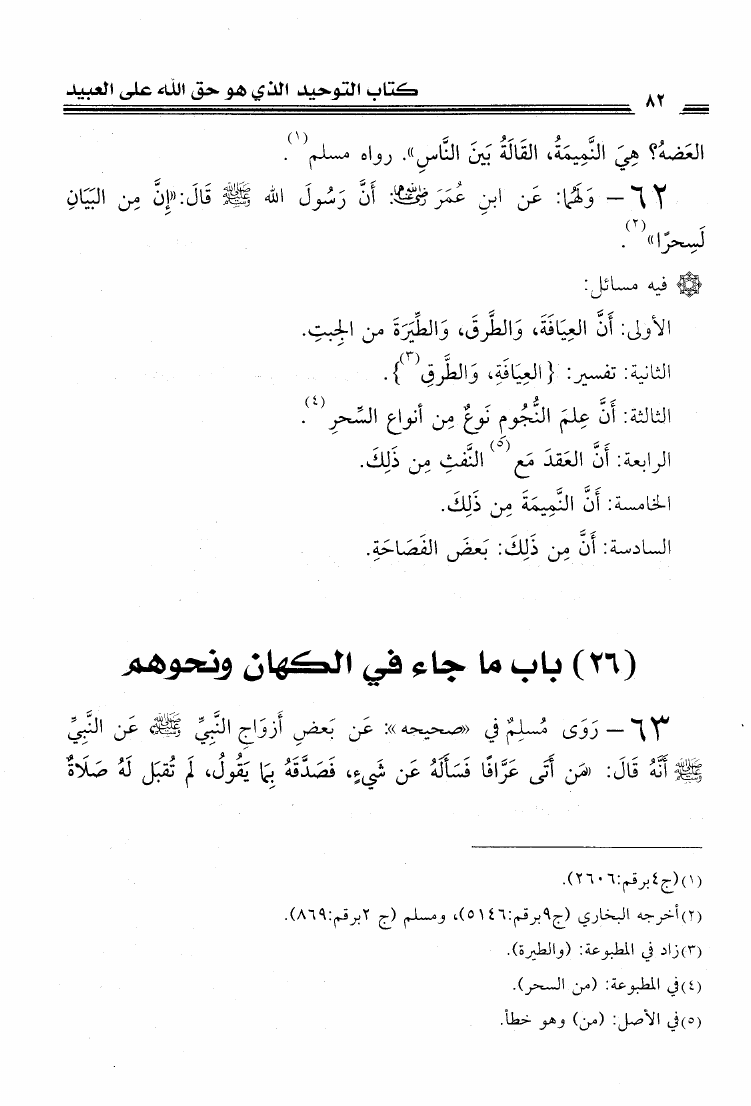 ٨٢ كتاب التوحيد الذي هو حق الله على العبيد
العَضهُ؟ هِيَ النَّمِيمَةُ، القَالَةُ بَينَ النَّاسِ». رواه مسلم(١).
٦٢ – وَلَهُمَا: عَن ابنِ عُمَرَ رضي الله عنهما: أَنَّ رَسُولَ الله ﷺ قَالَ:«إِنَّ مِن البَيَانِ
لَسِحرًا»(٢).
فيه مسائل:
الأولى: أَنَّ العِيَافَةَ، وَالطَّرقَ، وَالطِّيَرَةَ من الجِبتِ.
الثانية: تفسير: {العِيَافَةِ، وَالطَّرقِ(٣)}.
الثالثة: أَنَّ عِلمَ النُّجُومِ نَوعٌ مِن أنواع السِّحرِ(٤).
الرابعة: أَنَّ العَقدَ مَع(٥) النَّفثِ مِن ذَلِكَ.
الخامسة: أَنَّ النَّمِيمَةَ مِن ذَلِكَ.
السادسة: أَنَّ مِن ذَلِكَ: بَعضَ الفَصَاحَةِ.
(٢٦) باب ما جاء في الكهان ونحوهم
٦٣ – رَوَى مُسلِمٌ في «صحيحه»: عَن بَعضِ أَزوَاجِ النَّبِيِّ ﷺ عَن النَّبِيِّ
ﷺ أَنَّهُ قَالَ: «مَن أَتَى عَرَّافًا فَسَأَلَهُ عَن شَيءٍ، فَصَدَّقَهُ بِمَا يَقُولُ، لَم تُقبَل لَهُ صَلَاةٌ
(١)(ج٤برقم:٢٦٠٦).
(٢)أخرجه البخاري (ج٩برقم:٥١٤٦)، ومسلم (ج ٢برقم:٨٦٩).
(٣)زاد في المطبوعة: (والطيرة).
(٤)في المطبوعة: (من السحر).
(٥)في الأصل: (من) وهو خطأ.